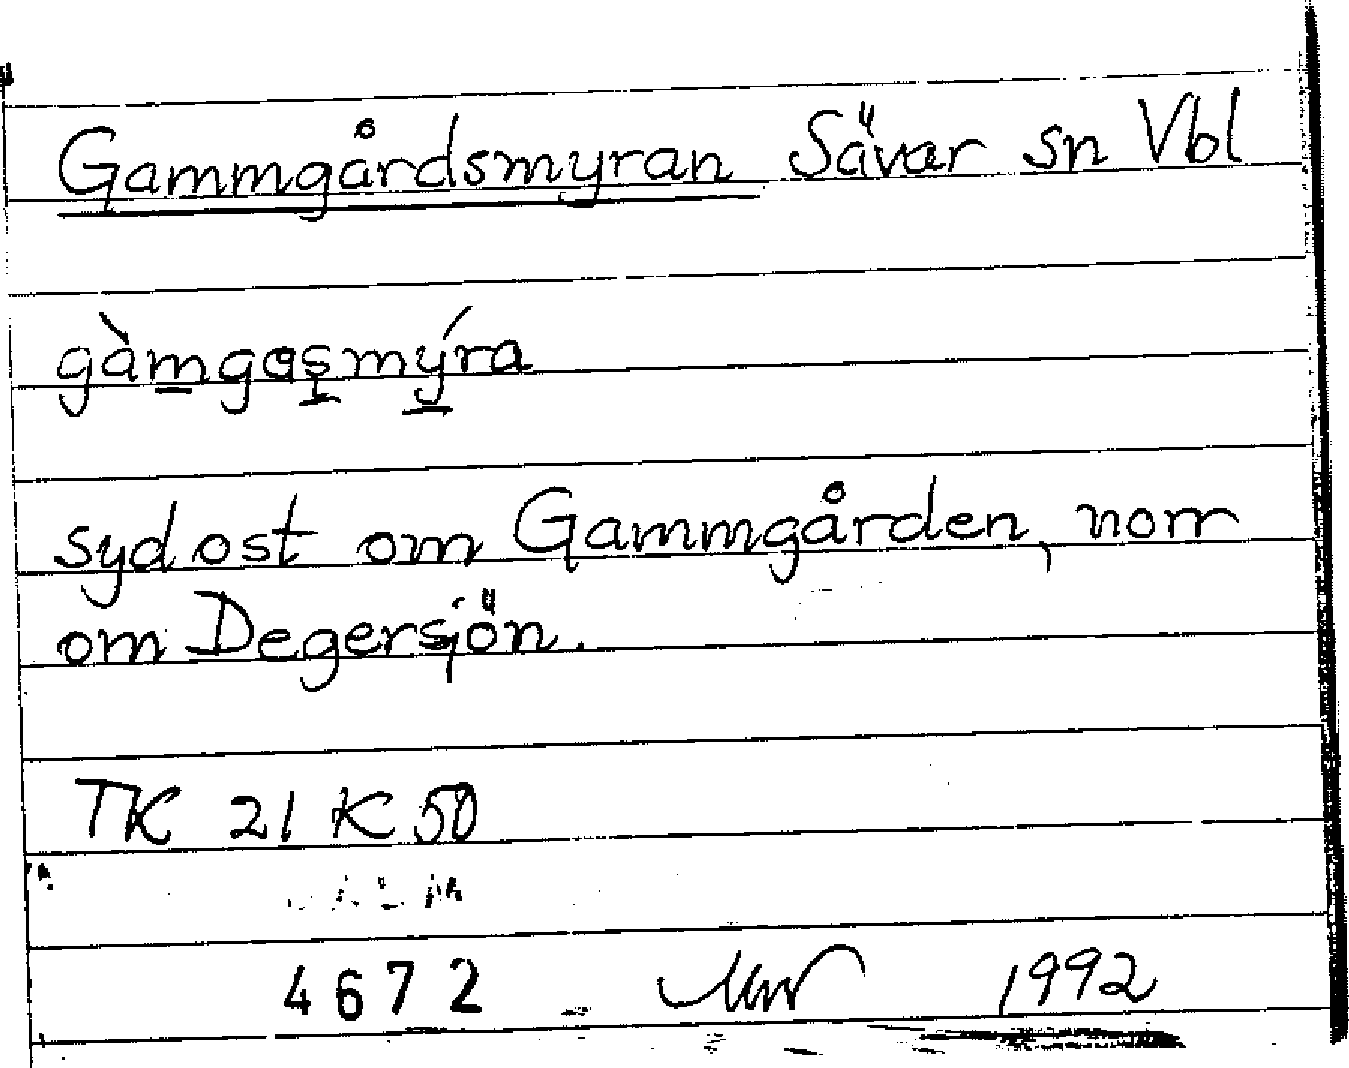 Gammgårdsmyran Sävar sn Vbl
gàmgasmýra
sydost om Gammgården, norr
om Degersjön.
TK 21 K 50
4672 1992